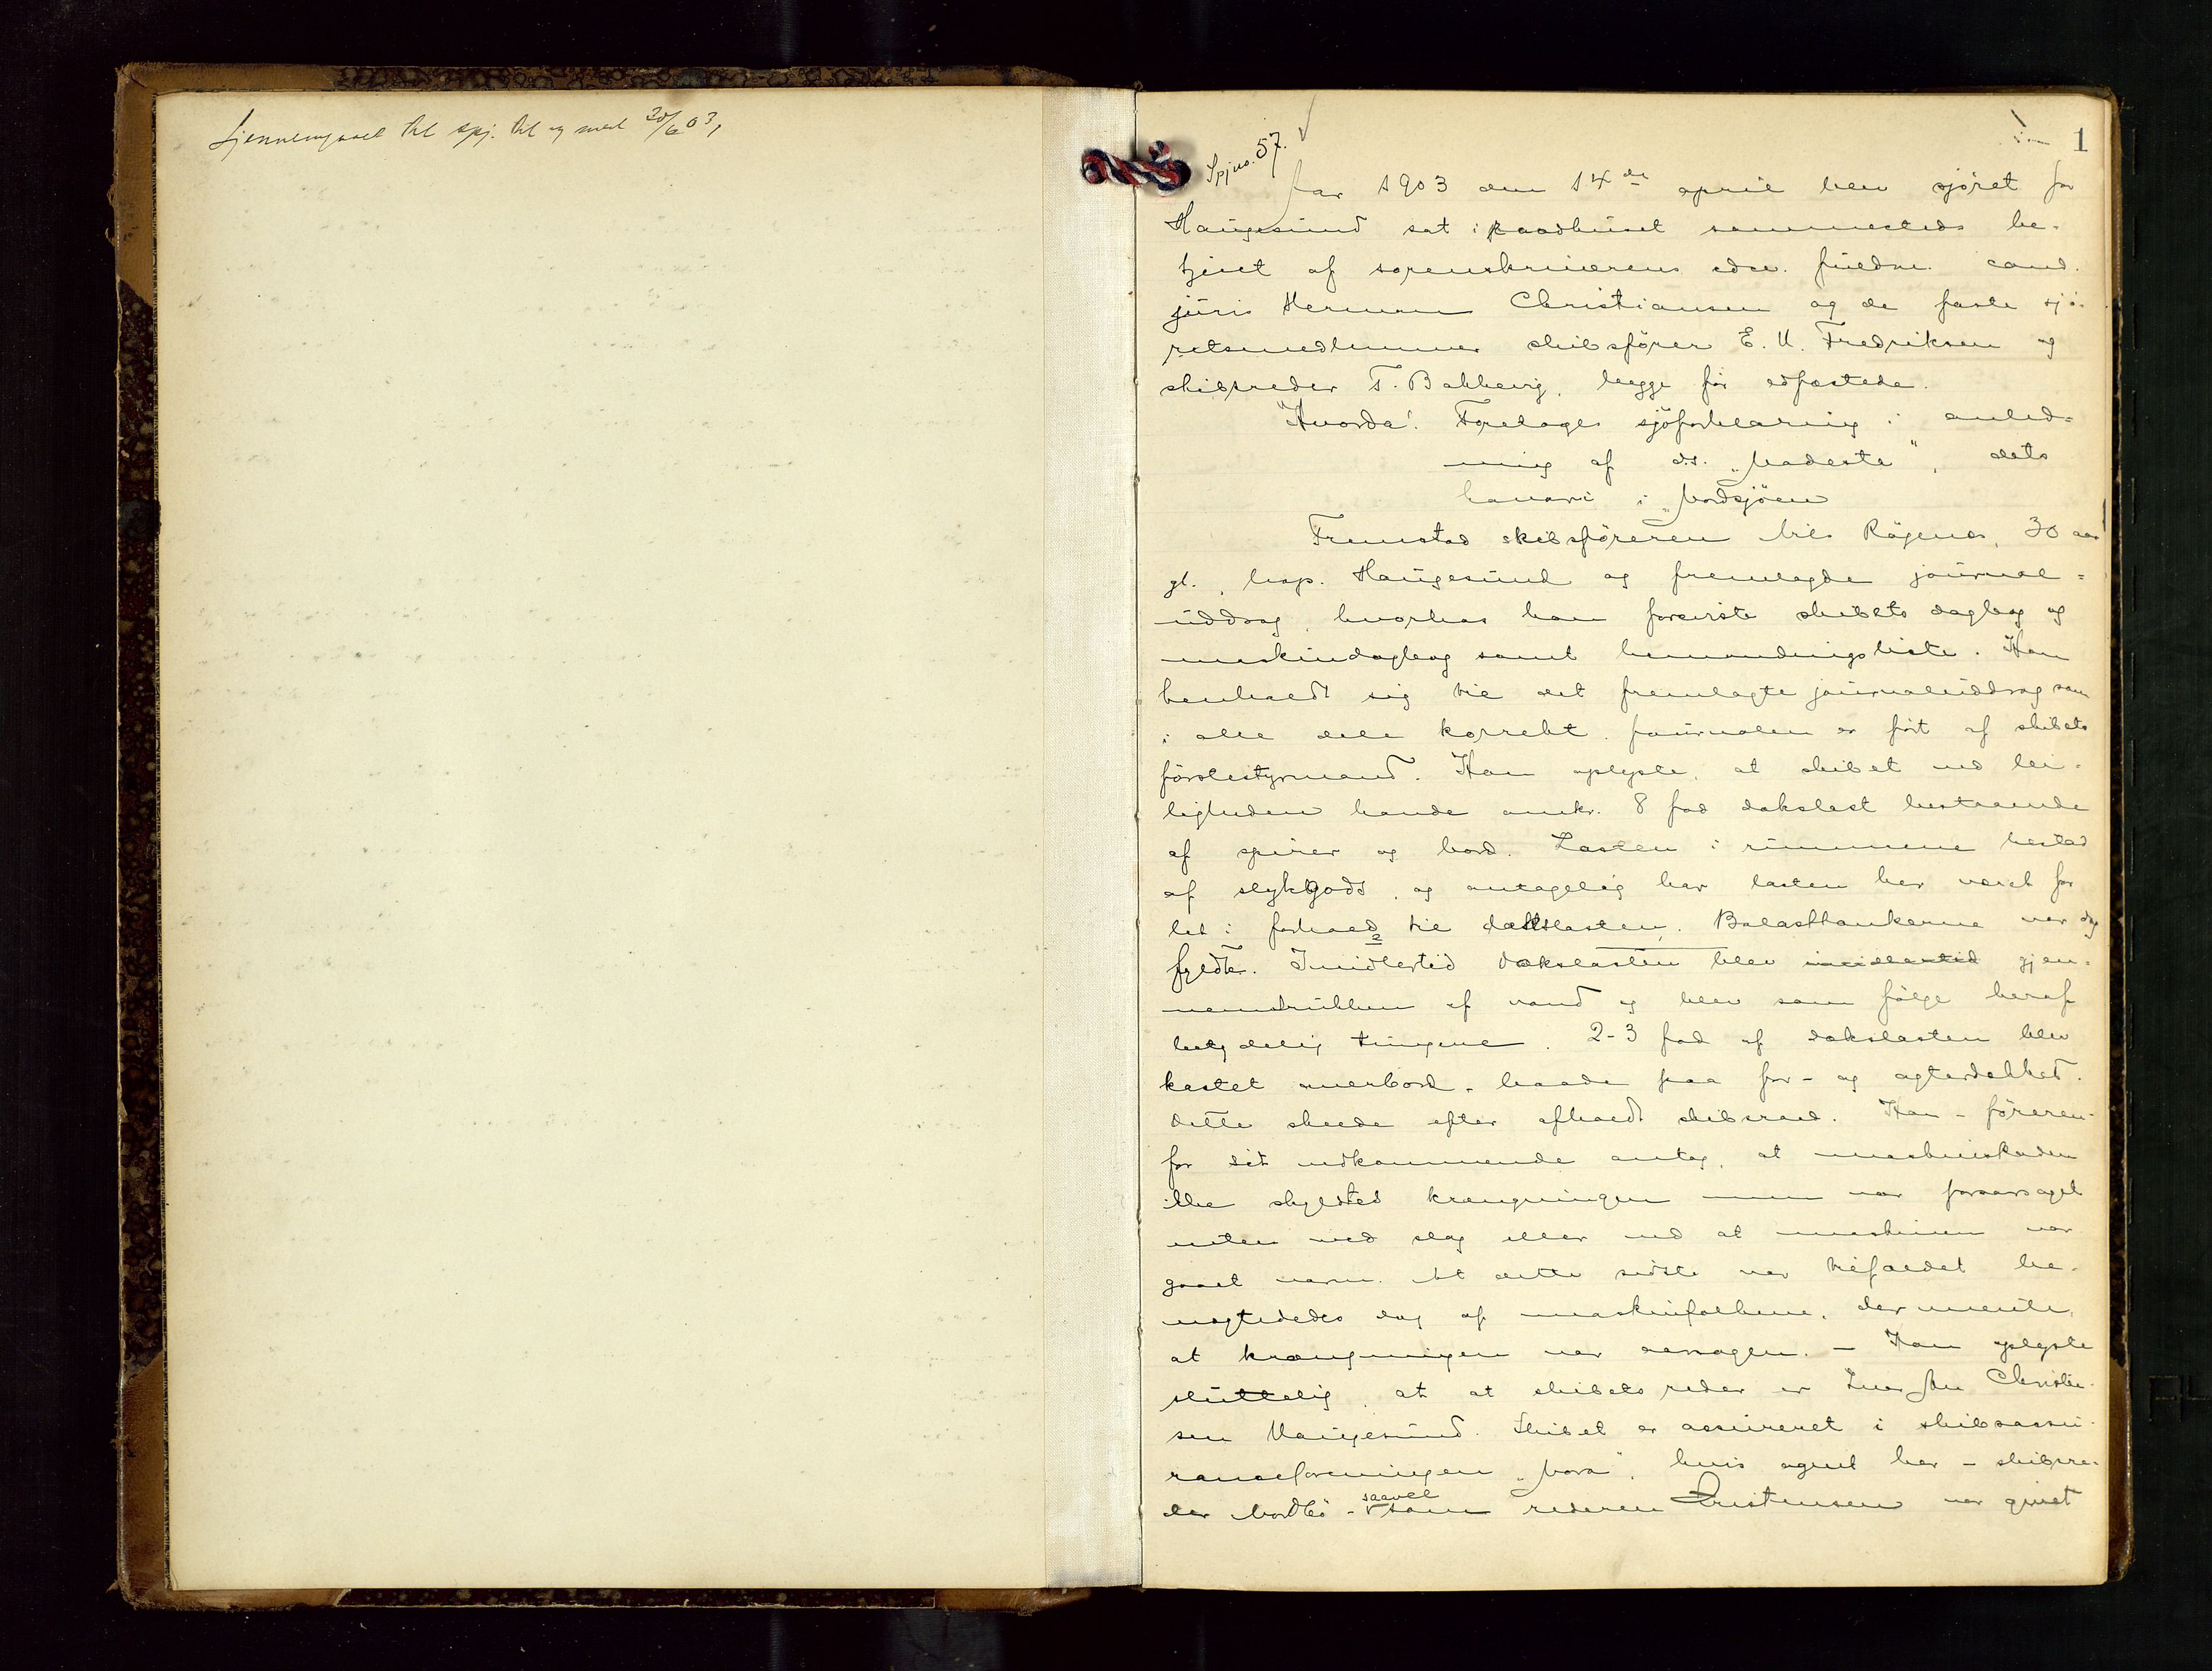 Gjennemgaaet til spj. til og med 30/6 03,
1
Spj no. 57.
Aar 1903 den 14de april blev sjöret for
Haugesund sat i raadhuset sammesteds be-
tjent af sorenskriverens edsv. fuldm. cand.
juris Herman Christiansen og de faste sjö-
retsmedlemmer skibsförer E. H. Fredriksen og
skibsreder T. Bakkevig, begge för edfæstede.
Hvorda: Foretoges sjöforklaring i anled-
ning af d.s. "Modeste", dets
havari i Nordsjöen
Fremstod skibsföreren Nils Rögenes, 30 aar
gl., bop. Haugesund og fremlagde journal-
uddrag, hvorhos han foreviste skibets dagbog og
maskindagbog samt bemandingsliste. Han
henholdt sig til det fremlagte journaluddrag som
i alle dele korrekt. Journalen er fört af skibets
förstestyrmand. Han oplyste, at skibet ved lei-
ligheden havde omkr. 8 fod dækslast bestaaende
af spirer og bord. Lasten i rummene bestod
af stykgods, og antagelig har lasten her været for
let i forhold til dækslasten. Balasttankerne var dog
fyldte. Imidlertid dækslasten blev imidlertid gjen-
nemtrukken af vand og blev som fölge heraf
betydelig tungere. 2-3 fod af dækslasten blev
kastet overbord, baade paa for- og agterdækket.
Dette skede efter afholdt skibsraad. Han - föreren -
for sit vedkommende antog, at maskinskaden
ikke skyldtes krængningen men var foraarsaget
enten ved slag eller ved at maskinen var
gaaet varm. At dette sidste var tilfældet be-
nægtedes dog af maskinfolkene, der mente,
at krængningen var aarsagen. - Han oplyste
sluttelig, at at skibets reder er Christen-
sen Haugesund. Skibet er assureret i skibsassu-
ranceforeningen "Nora", hvis agent her - skibsre-
der Nordbö - saavel som rederen Kristensen var givet